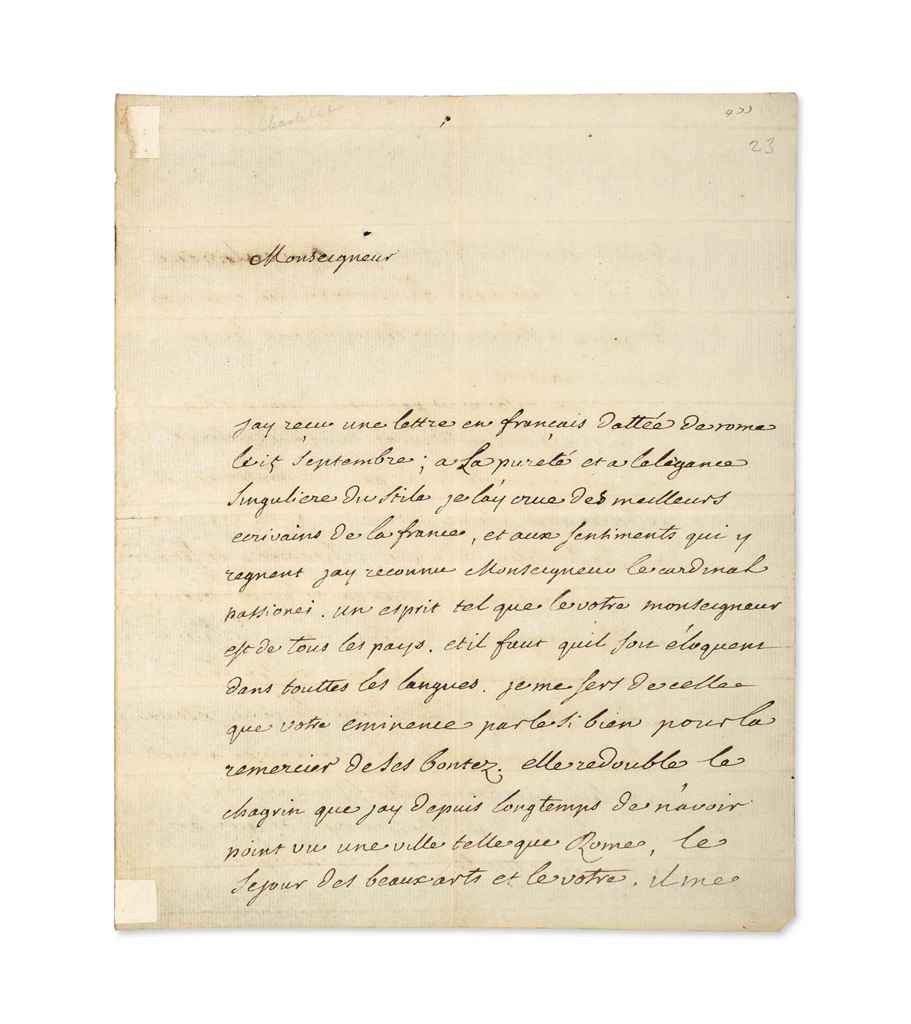 23
Monseigneur
jay recu une lettre en francais dattée de rome
le 15 septembre; a La pureté et a lelegance
singuliere du stile je lay crue des meilleurs
ecrivains de la france, et aux sentiments qui y
regnent jay reconnu Monseigneur le cardinal
passionei. un esprit tel que le votre monseigneur
est de tous les pays. et il faut quil soit éloquent
dans touttes les langues. je me sers de celle
que votre eminence parle si bien pour la
remercier de ses bontez. elle redouble le
chagrin que jay depuis longtemps de n'avoir
point vu une ville telle que Rome, le
sejour des beaux arts et le votre. il me